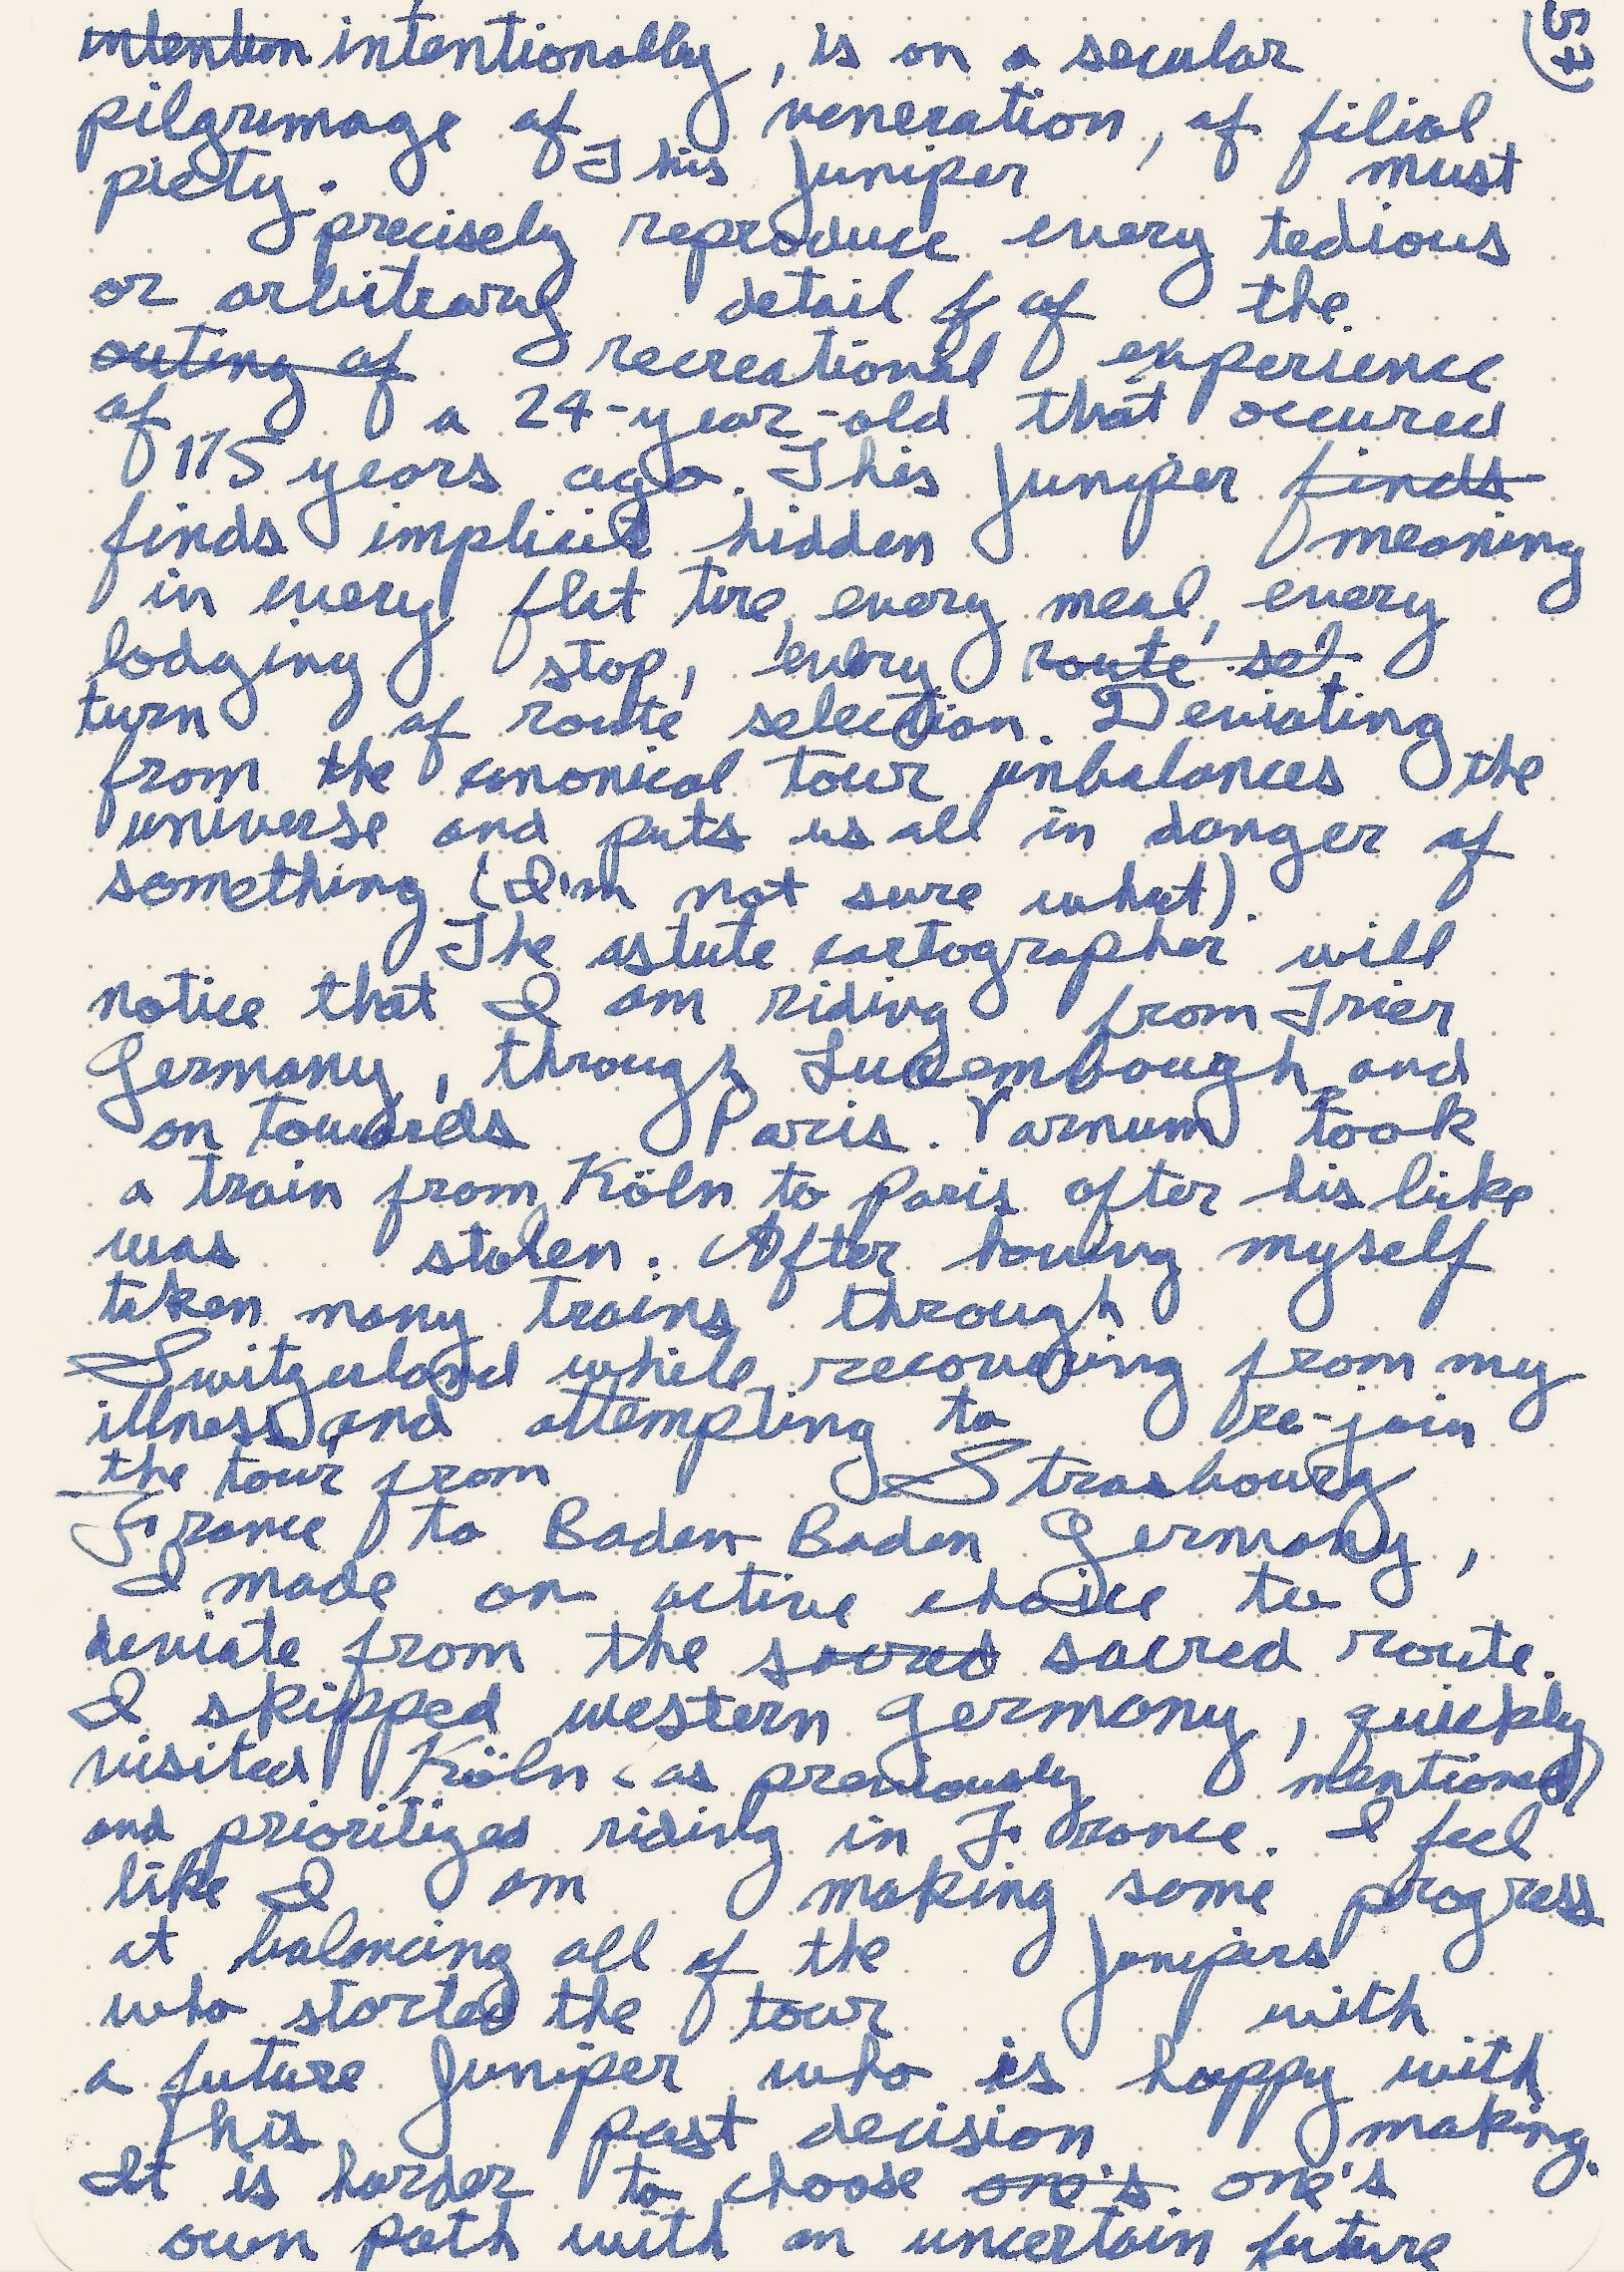 intention intentionally, is on a secular
pilgrimage of veneration, of filial
piety. This Juniper must
precisely reproduce every tedious
or arbitrary detail f of the
outing of recreational experience
of a 24-year-old that occured
175 years ago. This Juniper finds
finds implicit hidden meaning
in every flat tire, every meal, every
lodging stop, every route sel
turn of route selection. Deviating
from the canonical tour unbalances the
universe and puts us all in danger of
something (I'm not sure what).
The astute cartographer will
notice that I am riding from Trier
Germany, through Luxembough and
on towards Paris. Varnum took
a train from Köln to Paris after his bike
was stolen. After having myself
taken many trains through
Switzerland while recovering from my
illness and attempting to re-join
the tour from Strasbourg
France to Baden Baden Germany,
I made an active choice to
deviate from the sacred sacred route.
I skipped western Germany, quickly
visited Köln (as previously mentioned)
and prioritized riding in France. I feel
like I am making some progress
at balancing all of the Junipers
who started the tour with
a future Juniper who is happy with
his past decision making.
It is harder to choose one's one's
own path with an uncertain future